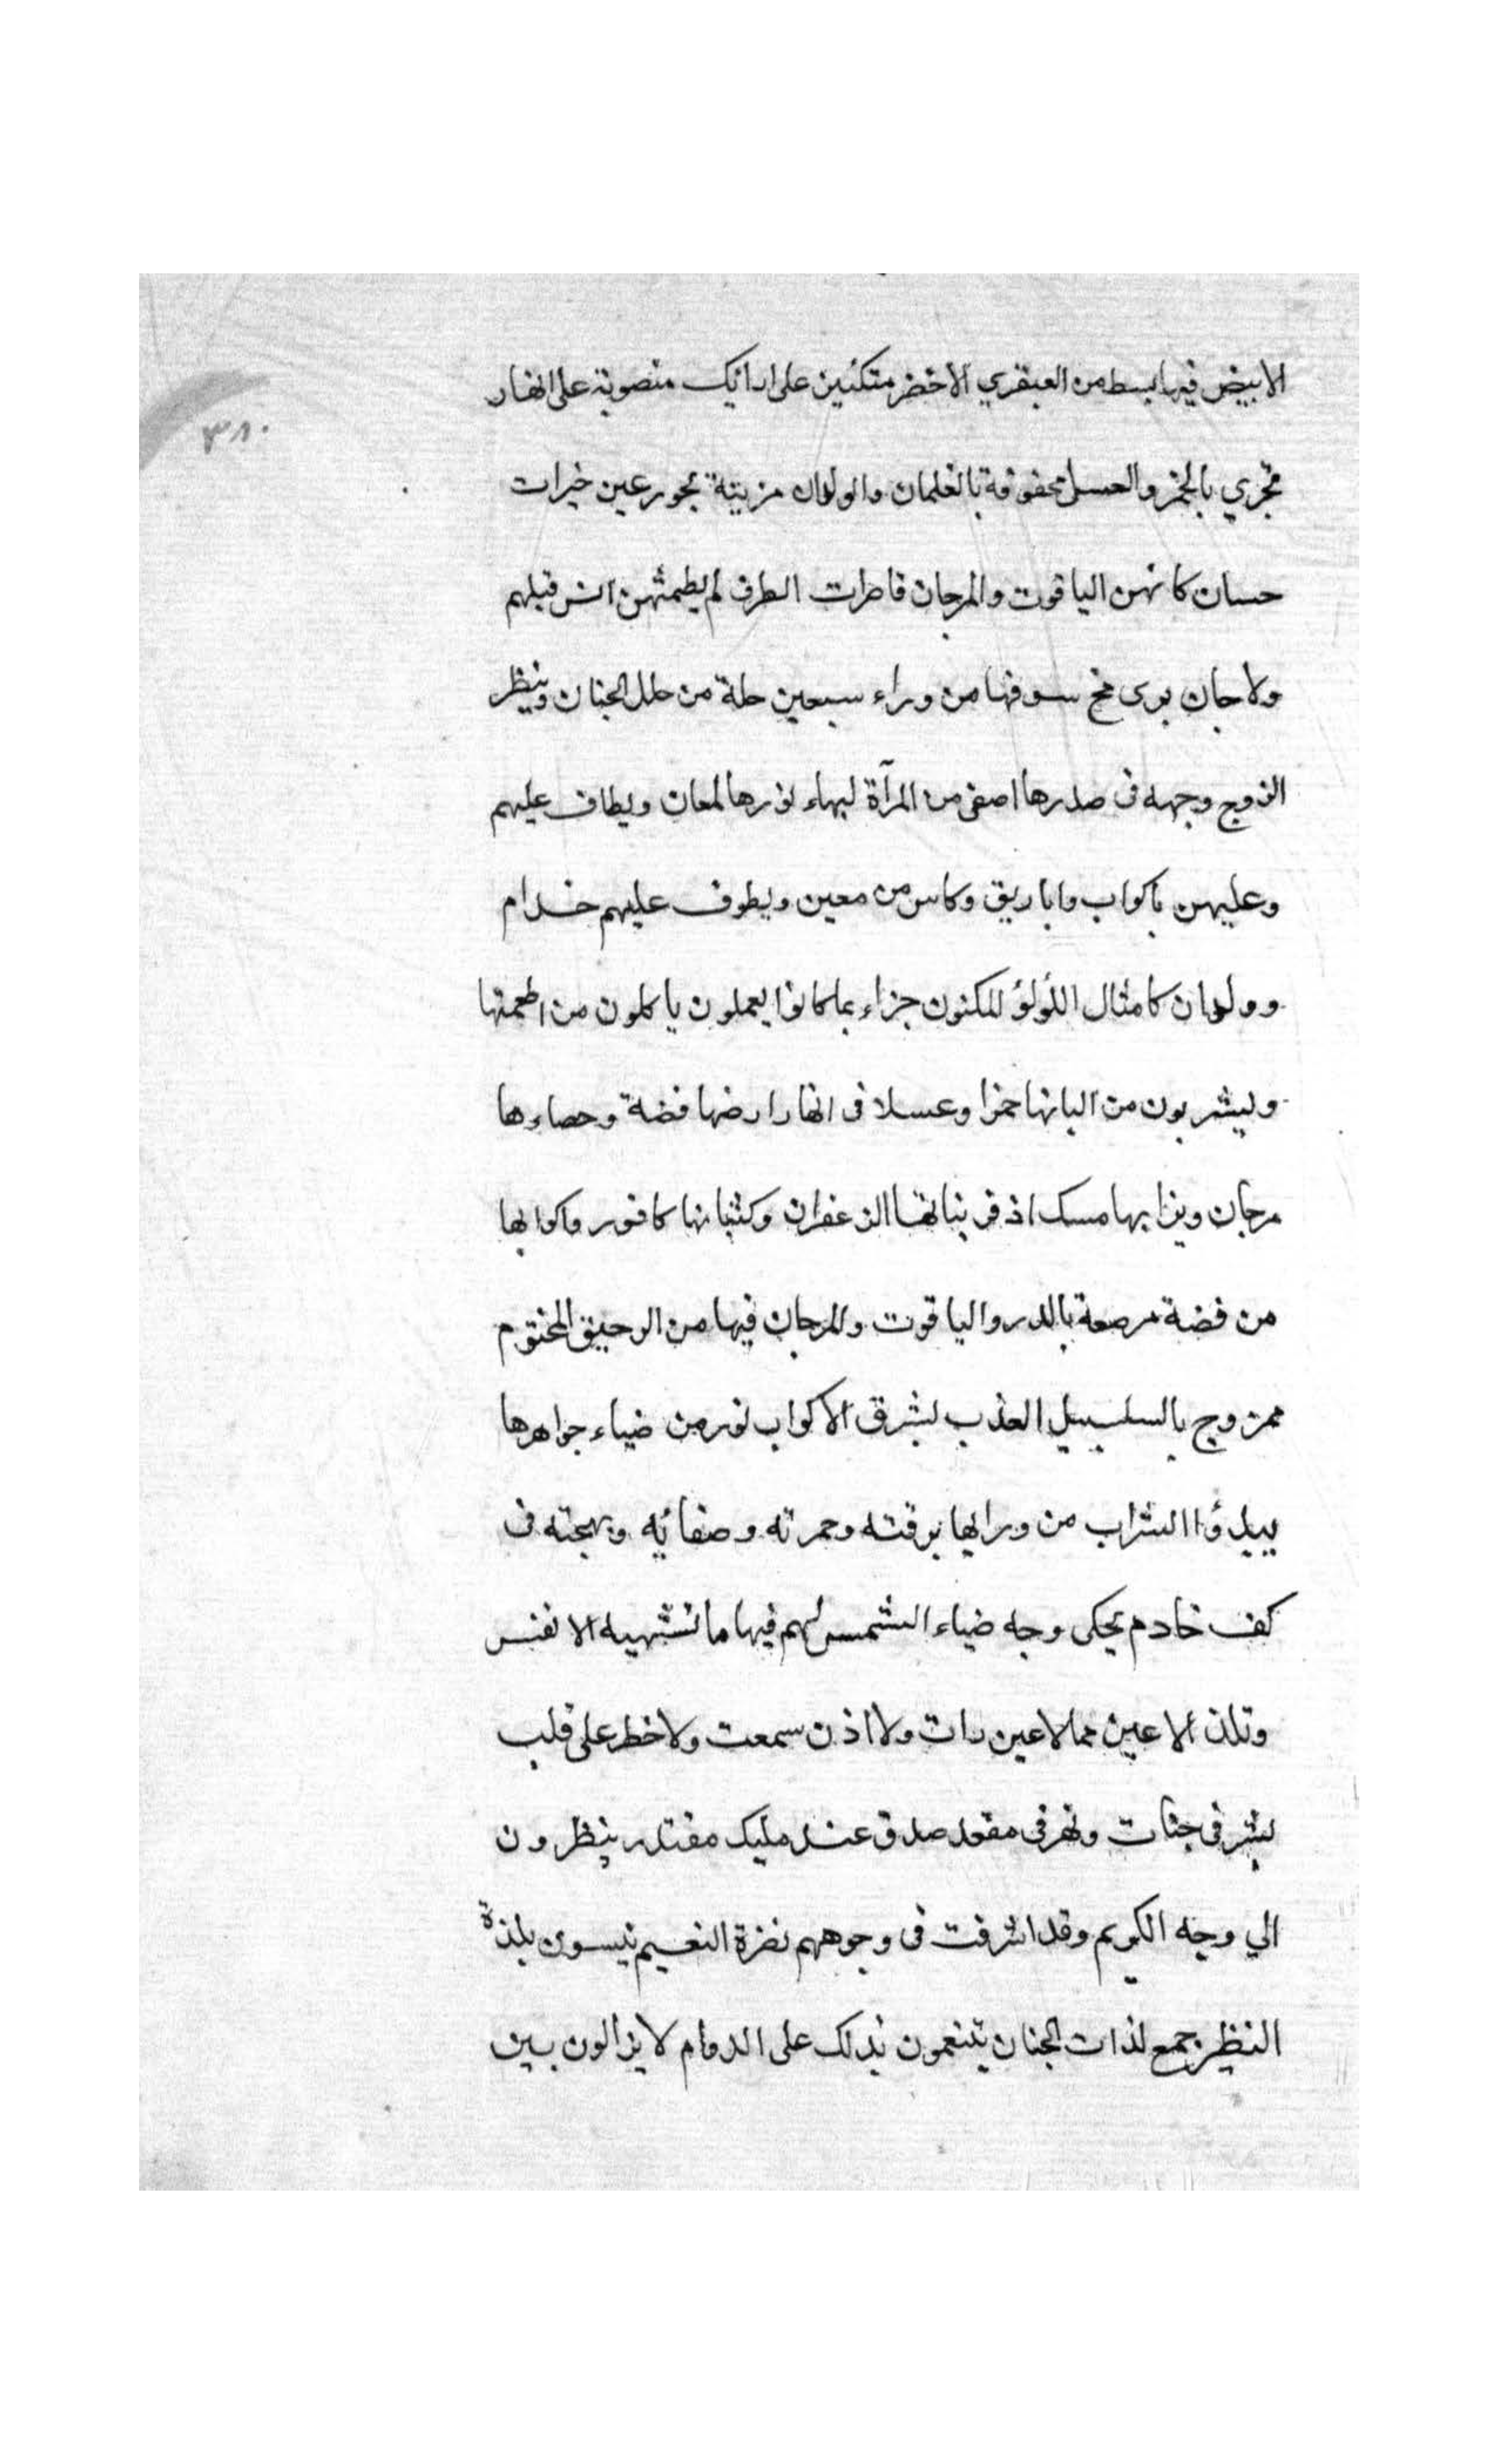 الابيض فيها بسط من العبقري الاخضر متكئين على ارائيك منصوبة على انهار
٣٨٠
تجري بالخمر والعسل محفوفة بالغلمان والولدان مزينة بحور عين خيرات
حسان كانهن الياقوت والمرجان قاصرات الطرف لم يطمثهن انس قبلهم
ولا جان يرى مخ سوقها من وراء سبعين حلة من حلل الجنان وينظر
الزوج وجهه فى صدرها اصفى من المرآة لبهاء نورها لمعان ويطاف عليهم
وعليهن باكواب واباريق وكاس من معين ويطوف عليهم خدام
وولدان كامثال اللؤلؤ المكنون جزاء بما كانوا يعملون ياكلون من اطعمتها
ويشربون من البانها خمرا وعسلا فى انهار ارضها فضة وحصاءها
مرجان وترابها مسك اذفر نباتها الزعفران وكثبانها كافور واكوابها
من فضة مرصعة بالدر والياقوت والمرجان فيها من الرحيق المختوم
ممزوج بالسلسبيل العذب لشرق الاكواب نور من ضياء جواهرها
يبدؤا الشراب من ورائها برقته وحمرته وصفائه وبهجته فى
كف خادم يحكى وجه ضياء الشمس لهم فيها ما تشتهيه الانفس
وتلذ الاعين مما لا عين رات ولا اذن سمعت ولا خطر على قلب
بشر فى جنات ونهر فى مقعد صدق عند مليك مقتدر ينظرون
الي وجه الكريم وقد اشرقت فى وجوههم نضرة النعيم نيسون بلذة
النظر جمع لذات الجنان يتنعمون بذلك على الدوام لا يزالون بين